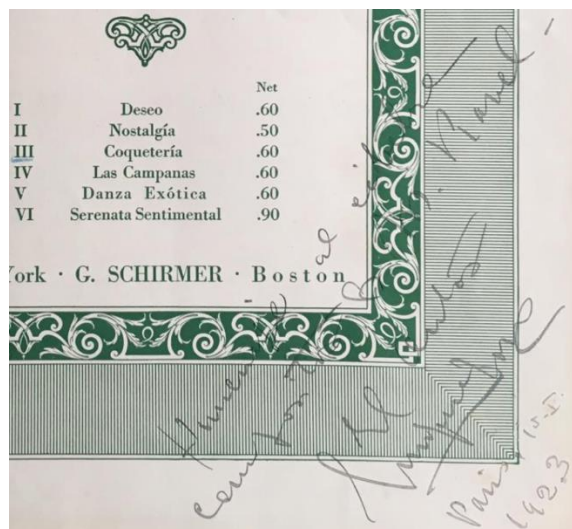 Net
I Deseo .60
II Nostalgía .50
III Coquetería .60
IV Las Campanas .60
V Danza Exótica .60
VI Serenata Sentimental .90
York · G. SCHIRMER · Boston
Homenaje al eximio
compositor Ravel -
Paris 15-I-
1923